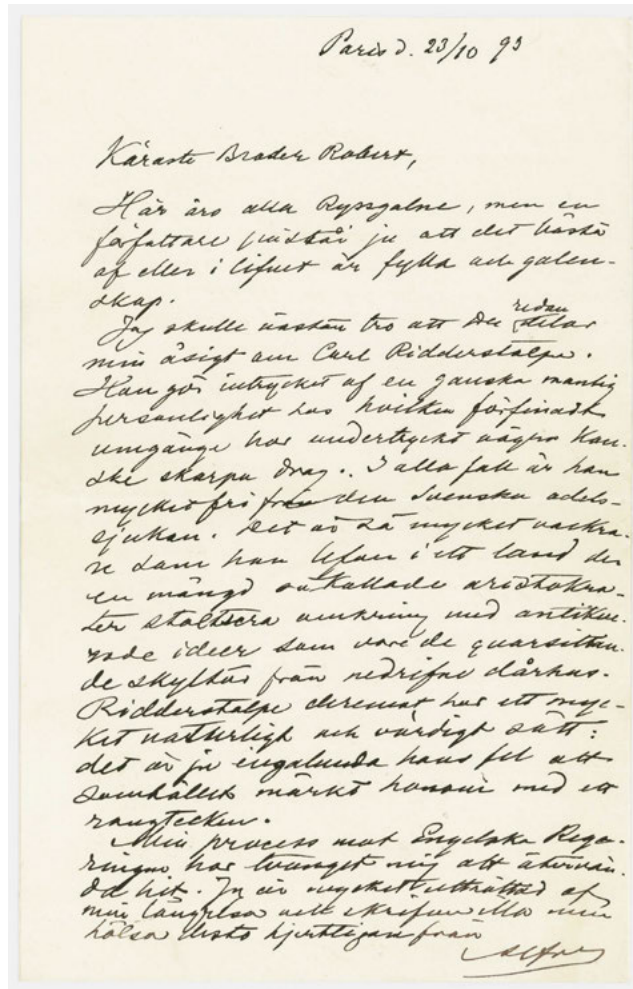 Paris d. 23/10 93
Käraste Broder Robert,
Här äro alla Ryssgalne, men en
författare påstår ju att det bästa
af eller i lifvet är fylla och galen-
skap.
Jag skulle nästan tro att Du redan delar
min åsigt om Carl Ridderstolpe.
Han gör intrycket af en ganska mantig
personlighet hos hvilken förfinadt
umgänge har undertryckt några kan-
ske skarpa drag. I alla fall är han
mycket fri från den Svenska adels-
sjukan. Det är så mycket vackra-
re som han lefver i ett land der
en mängd så kallade aristokra-
ter stoltsera omkring med antikve-
rade ideer som vore de quarsittan-
de skyltar från nedrifne dårhus.
Ridderstolpe deremot har ett myc-
ket naturligt och värdigt sätt:
det är ju ingalunda hans fel att
samhället märkt honom med ett
rangtecken.
Min process mot Engelska Rege-
ringen har tvunget mig att återvän-
da hit. Jag är mycket uttråttad af
min och skrifver illa men
hälsa desto hjertligare från
Alfred